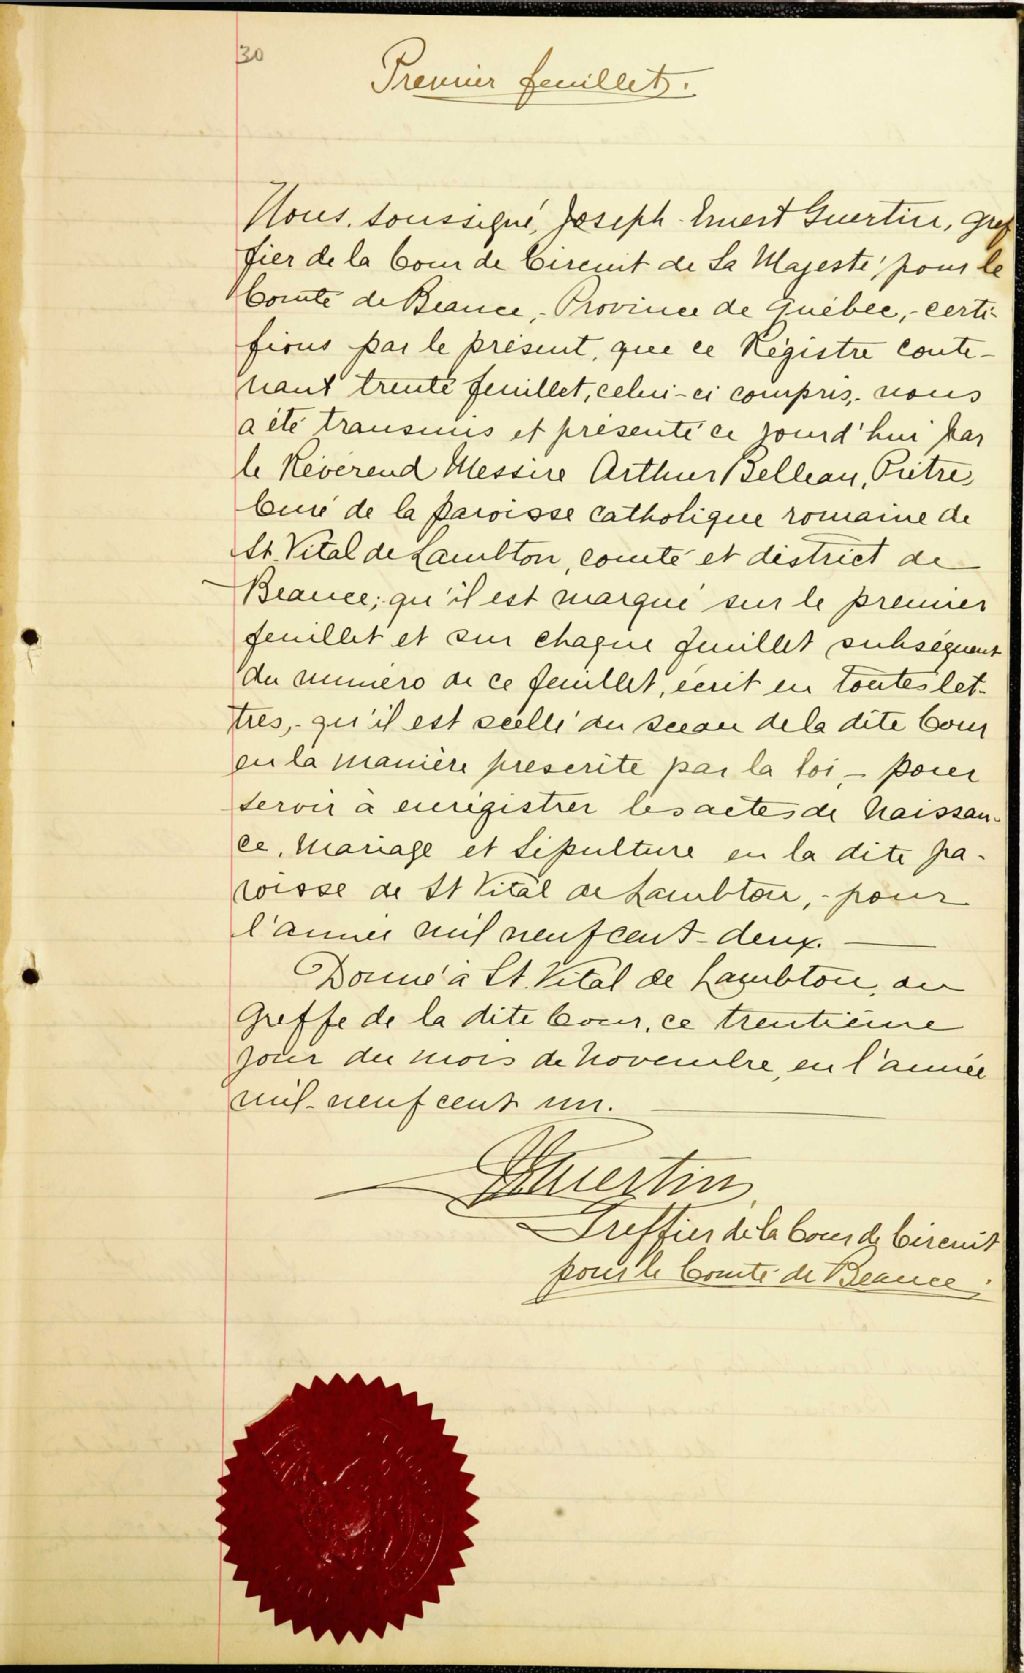 30
Premier feuillet.
Nous, soussigné, Joseph-Ernest Guertin, gref
fier de la Cour de Circuit de Sa Majesté, pour le
Comté de Beauce,- Province de Québec,- certi-
fions par le présent, que ce Régistre conte-
nant trente feuillet, celui-ci compris,- nous
a été transmis et présenté ce jourd'hui par
le Révérend Messire Arthur Belleau, Prêtre,
Curé de la paroisse catholique romaine de
St. Vital de Lambton, comté et district de
Beauce; qu'il est marqué sur le premier
feuillet et sur chaque feuillet subséquent
du numéro de ce feuillet, écrit en toutes let-
tres,- qu'il est scellé du sceau de la dite Cour
en la manière prescrite par la loi,- pour
servir à enrégistrer les actes de Naissan-
ce, Mariage et Sépulture en la dite pa-
roisse de St Vital de Lambton,- pour
l'année mil neuf cent-deux.
Donné à St. Vital de Lambton, au
greffe de la dite Cour, ce trentième
jour du mois de Novembre, en l'année
mil-neuf cent un.
JEGuertin,
Greffier de la Cour de Circuit
pour le Comté de Beauce.